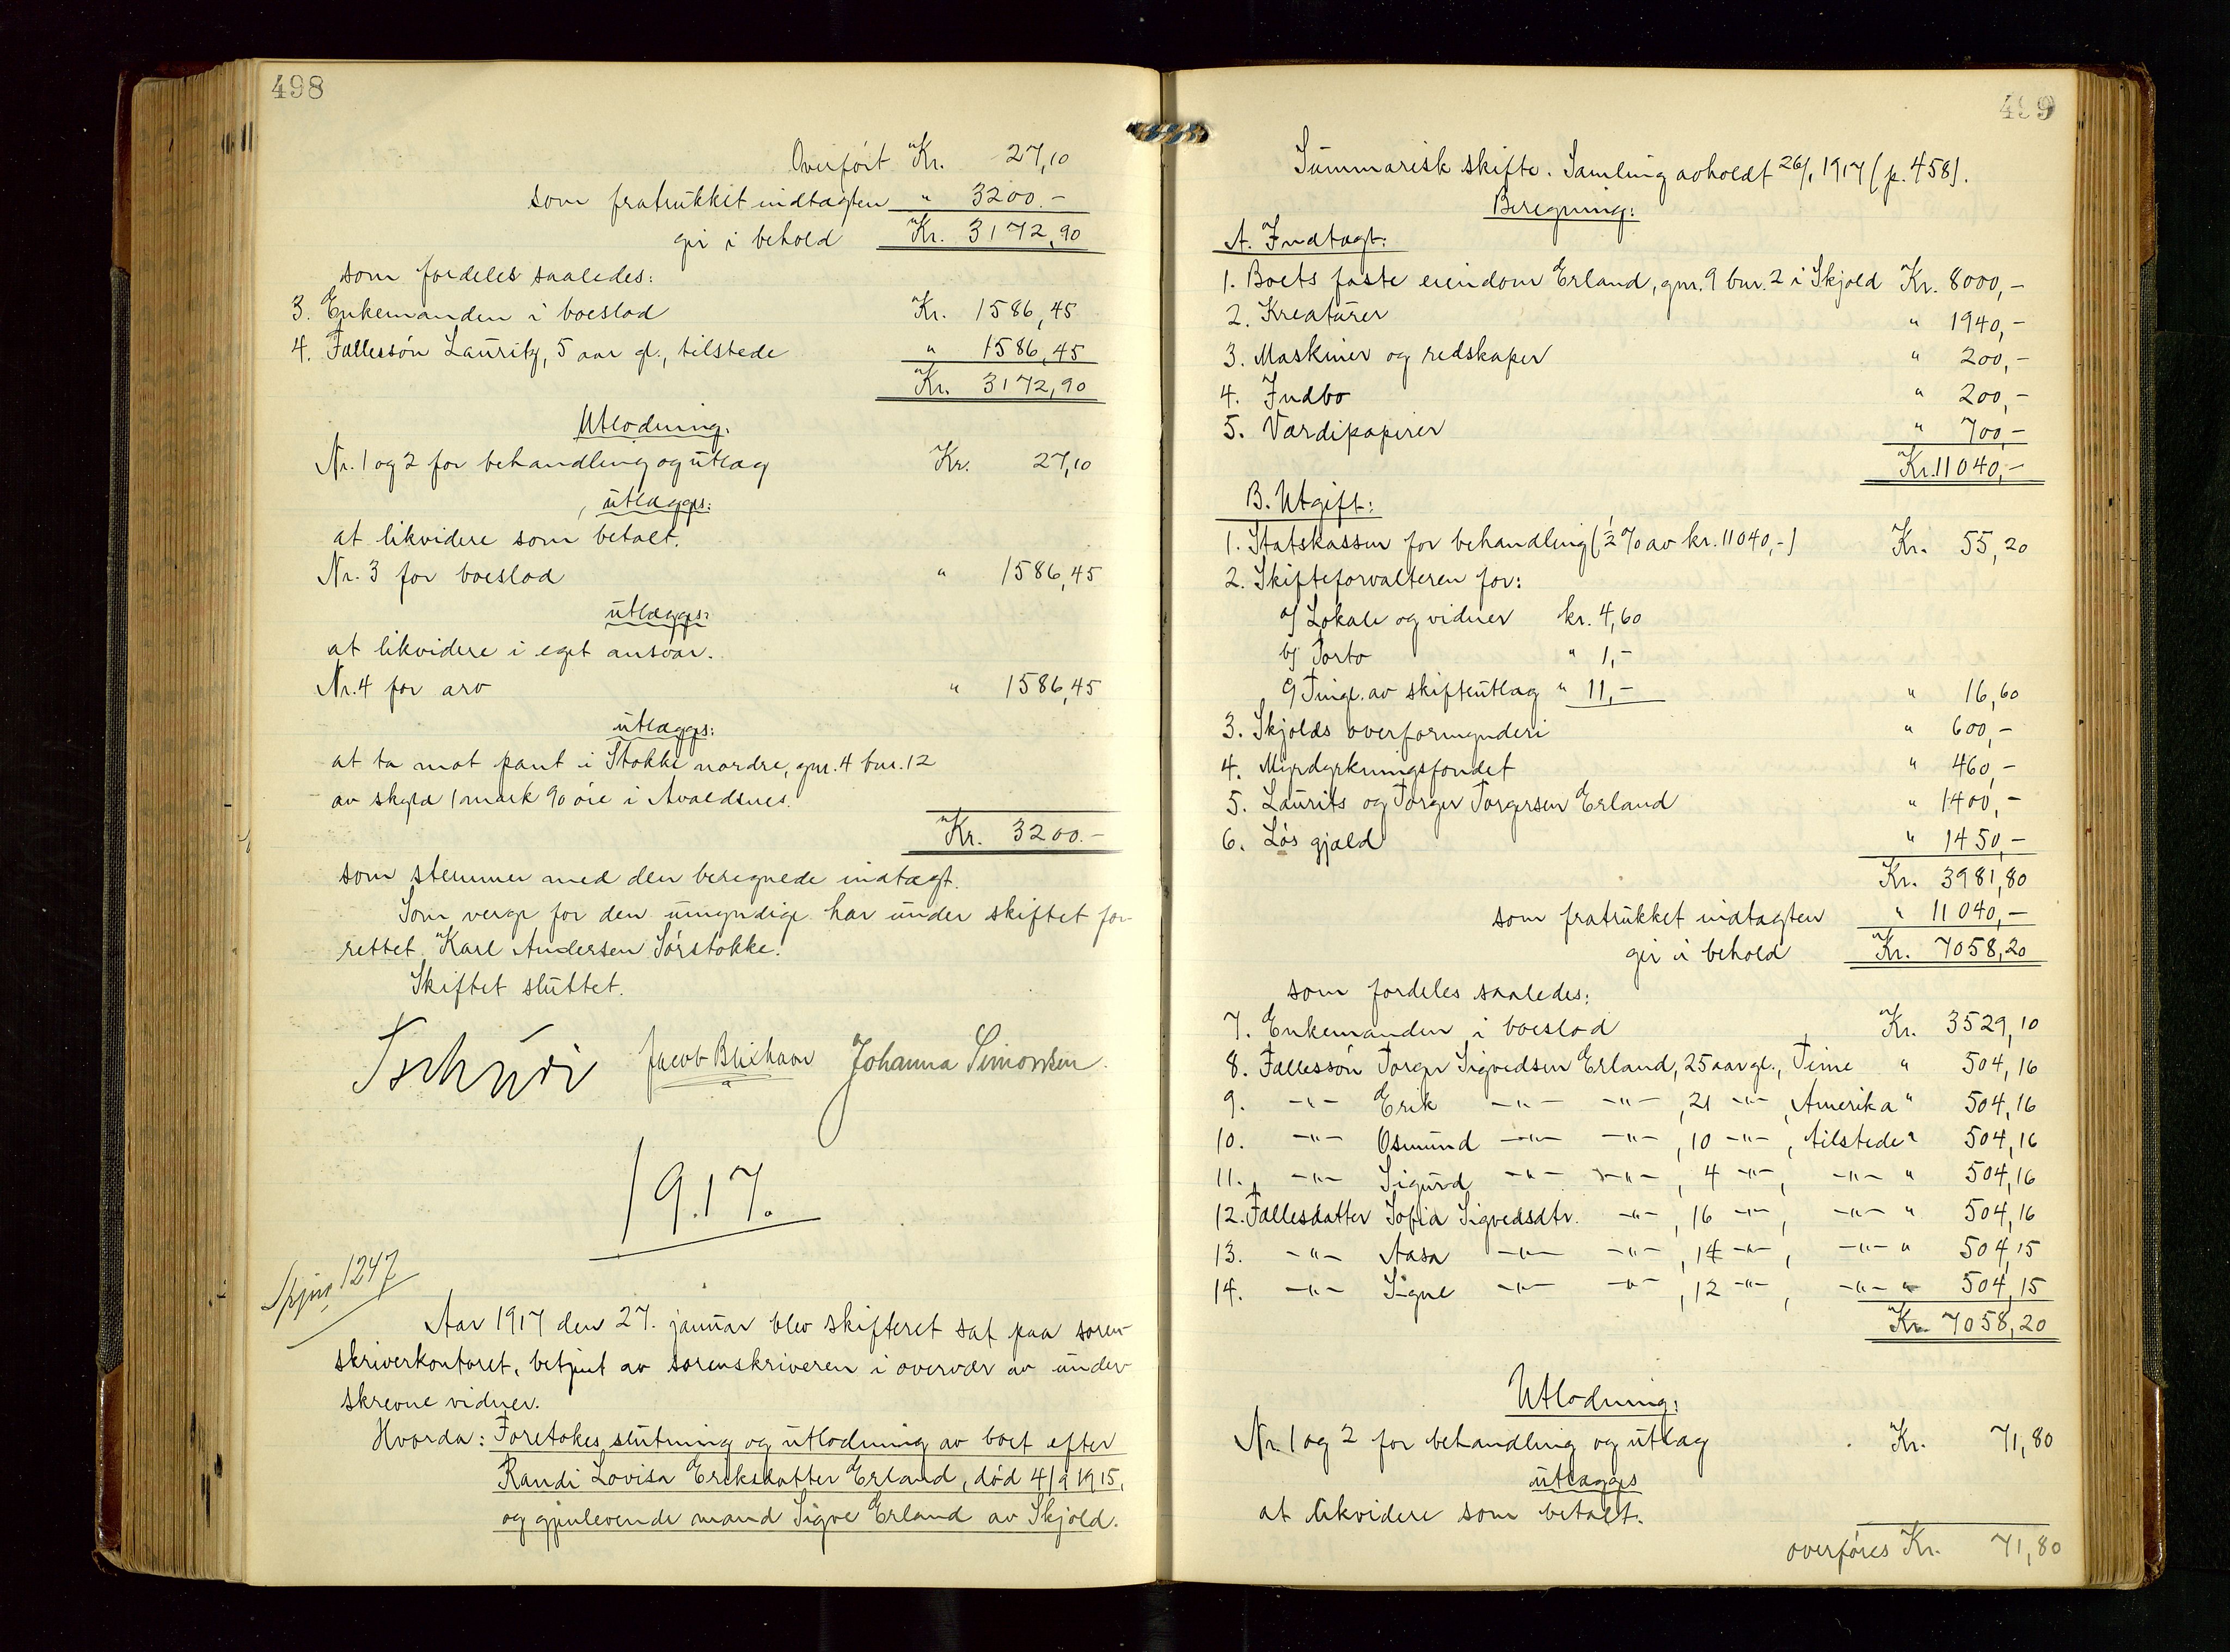 498
Overført Kr. 27,10
som fratrukket indtægten " 3200.-
gir i behold Kr. 3172,90
som fordeles saaledes:
3. Enkemanden i boeslod Kr. 1586,45
4. Fællessøn Lauritz, 5 aar gl., tilstede " 1586,45
Kr. 3172,90
Utlodning:
Nr. 1 og 2 for behandling og utlæg Kr. 27,10
utlægges:
at likvidere som betalt.
Nr. 3 for boeslod " 1586,45
utlægges:
at likvidere i eget ansvar.
Nr. 4 for arv " 1586,45
utlægges:
at ta mot pant i Stokke nordre, gnr. 4 bnr. 12
av skyld 1 mark 90 øre i Avaldsnes.
Kr. 3200.-
som stemmer med den beregnede indtægt.
Som verge for den umyndige har under skiftet for-
rettet Karl Andersen Sørstokke.
Skiftet sluttet.
Tschudi Jacob Blixhavn Johanna Simonsen.
1917.
1247
Aar 1917 den 27. januar blev skifteret sat paa soren-
skriverkontoret, betjent av sorenskriveren i overvær av under-
skrevne vidner.
Hvorda: Foretokes slutning og utlodning av boet efter
Randi Lovisa Eriksdatter Erland, død 4/9 1915,
og gjenlevende mand Sigve Erland av Skjold.
499
Summarisk skifte. Samling avholdt 26/1 1917 (p. 458).
Beregning:
A. Indtægt:
1. Boets faste eiendom Erland, gnr. 9 bnr. 2 i Skjold Kr. 8000,-
2. Kreaturer " 1940,-
3. Maskiner og redskaper " 200,-
4. Indbo " 200,-
5. Værdipapirer " 700,-
Kr. 11040,-
B. Utgift:
1. Statskassen for behandling (½ % av kr. 11040,-) Kr. 55,20
2. Skifteforvalteren for:
a) Lokale og vidner kr. 4,60
b) Porto " 1,-
c) Tingl. av skifteutlæg " 11,- " 16,60
3. Skjolds overformynderi " 600,-
4. Myrdyrkningsfondet " 460,-
5. Laurits og Torger Torgersen Erland " 1400,-
6. Løs gjæld " 1450,-
Kr. 3981,80
som fratrukket indtægten " 11040,-
gir i behold Kr. 7058,20
som fordeles saaledes:
7. Enkemanden i boeslod Kr. 3529,10
8. Fællessøn Torger Sigvedsen Erland, 25 aar gl., Time " 504,16
9. -"- Erik -"- -"-, 21 -"-, Amerika " 504,16
10. -"- Osmund -"- -"-, 10 -"-, tilstede " 504,16
11. -"- Sigurd -"- -"-, 4 -"-, -"- " 504,16
12. Fællesdatter Sofia Sigvedsdtr. -"-, 16 -"-, -"- " 504,16
13. -"- Aasa -"- -"-, 14 -"-, -"- " 504,15
14. -"- Signe -"- -"-, 12 -"-, -"- " 504,15
Kr. 7058,20
Utlodning:
Nr. 1 og 2 for behandling og utlæg Kr. 71,80
utlægges
at likvidere som betalt.
overføres Kr. 71,80